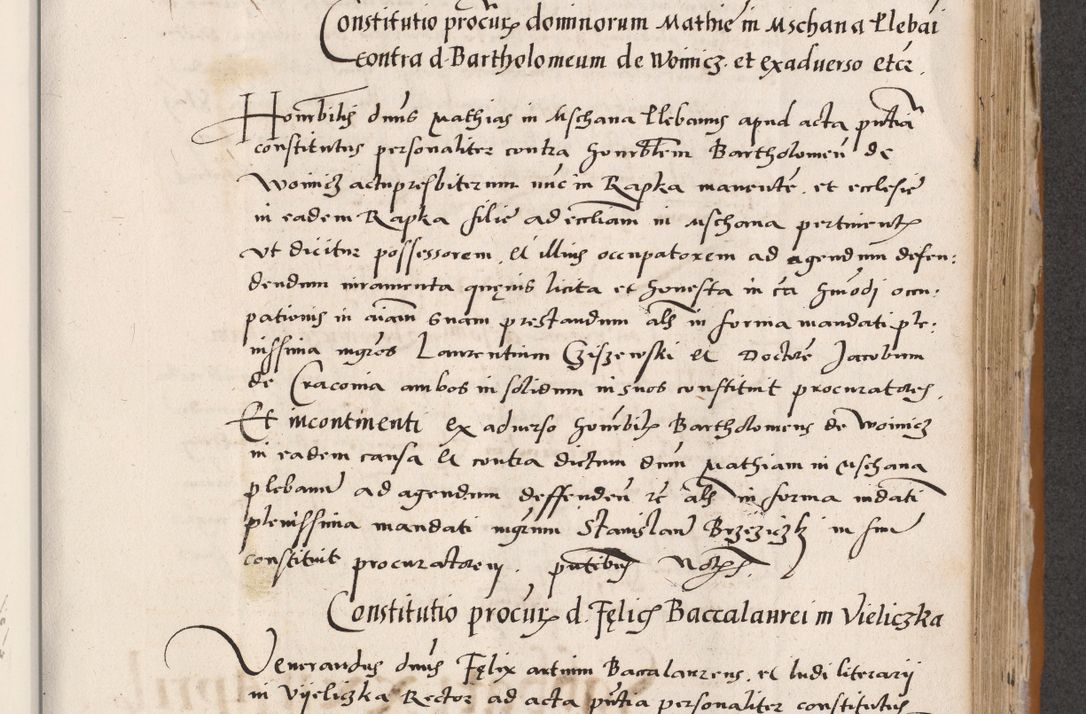 Constitutio procur dominorum Mathie in Mschana plebai
contra d. Bartholomeum de Woinicz et exadverso etc.
Honorbilis dnus Mathias in Mschana plebanus apud acta pntia
constitutus personaliter contra honorbilem Bartholomeu de
Woinicz actu presbiterum nunc in Rapka manente, et ecclesie
in eadem Rapka filie ad eccliam in Mschana pertinent
ut dicitur possessorem, et illius occupatorem ad agendum defen:
dendum iuramenta quevis licita et honesta in ca humodi occu:
pationis in aiam suam prestandum als in forma mandati ple:
nissima mgros Laurentium Cziszewski et Doctore Jacobum
de Cracovia ambos in solidum in suos constituit procuratores.
Et incontinenti ex adverso honorbilis Bartholomeus de Woinicz
in eadem causa et contra dictum dnum Mathiam in Mschana
plebanu ad agendum deffendeu rc als in forma mdati
plenissima mandati mgrum Stanislau Brzeziczk in suu
constituit procuratorem. pntibus
Constitutio procur d. Felicis Baccalaurei in Vieliczka
Venerandus dnus Felix artium Baccalaureus, et ludi literarii
in Vijeliczka Rector ad acta pntia personaliter constitutus